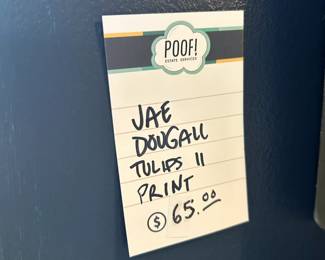 POOF!
ESTATE SERVICES
JAE
DOUGALL
TULIPS II
PRINT
$ 65.00